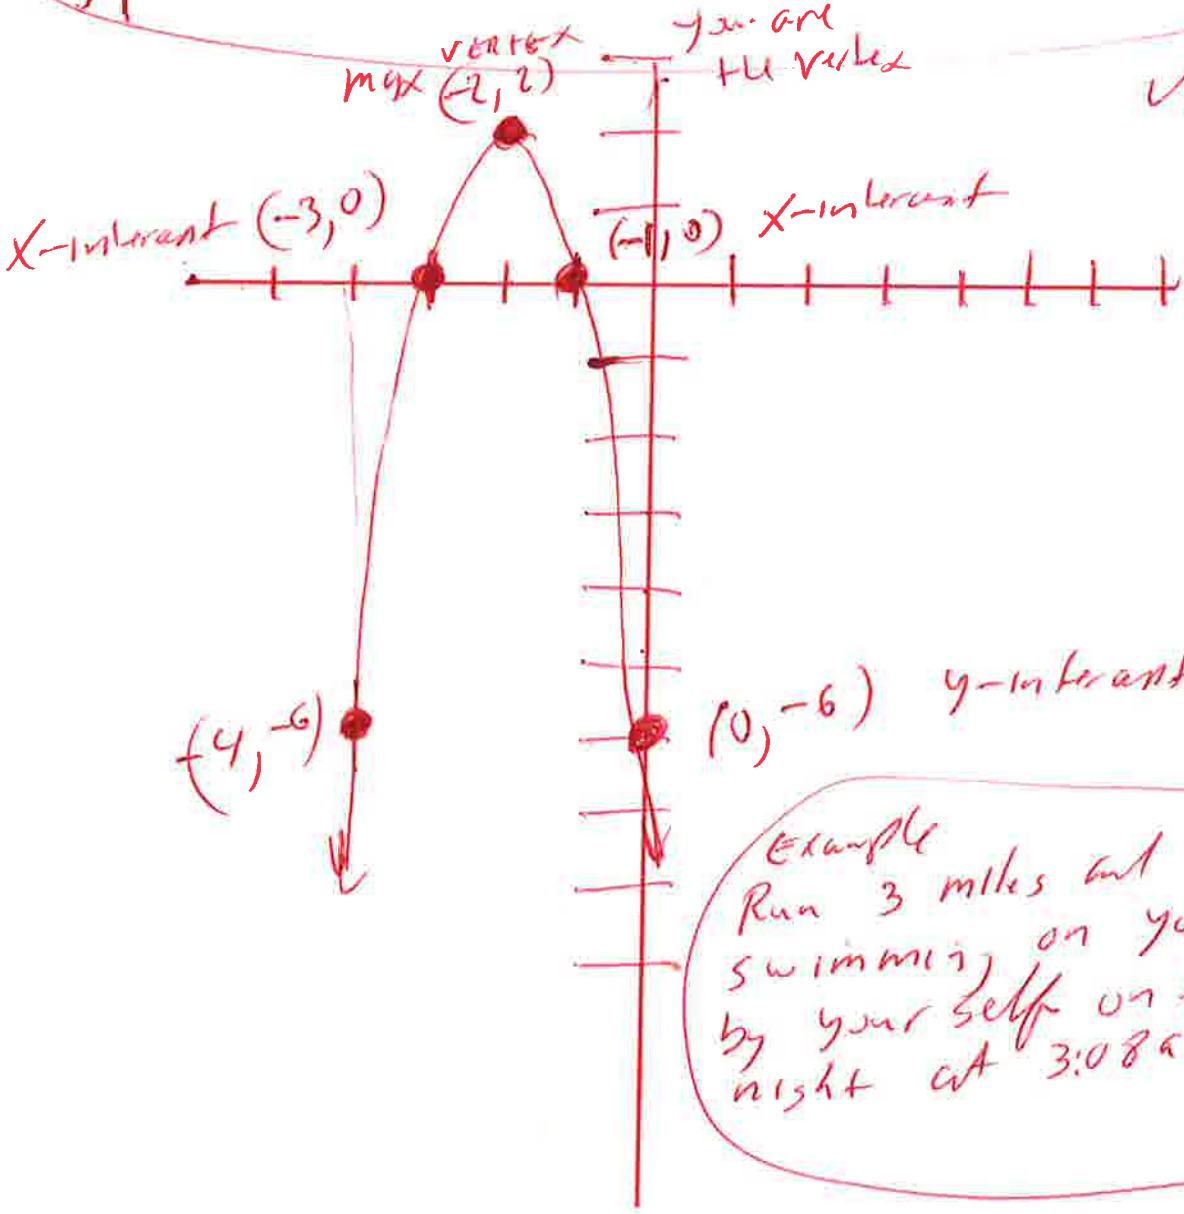 VERTEX
max (-2, 2)
you are
the vertex
x-intercept (-3, 0)
(-1, 0) x-intercept
(-4, -6)
(0, -6) y-intercept
Example
Run 3 miles and
swimming on
by your self on
night at 3:08 a